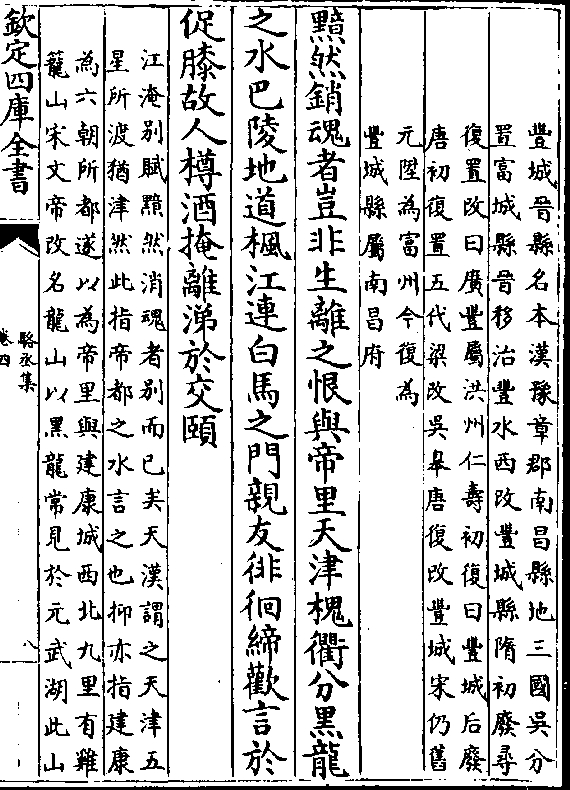 豐城晉縣名本漢豫章郡南昌縣地三國吳分
置富城縣晉移治豐水西改豐城縣隋初廢尋
復置改曰廣豐屬洪州仁壽初復曰豐城后廢
唐初復置五代梁改吳皋唐復改豐城宋仍舊
元陞為富州今復為
豐城縣屬南昌府
黯然銷魂者豈非生離之恨與帝里天津槐衢分黑龍
之水巴陵地道楓江連白馬之門親友徘徊締歡言於
促膝故人樽酒掩離涕於交頤
江淹别賦黯然消魂者别而已矣天漢謂之天津五
星所渡猶津然此指帝都之水言之也抑亦指建康
為六朝所都遂以為帝里與建康城西北九里有雞
籠山宋文帝改名龍山以黑龍常見於元武湖此山
欽定四庫全書
駱丞集
卷四
八